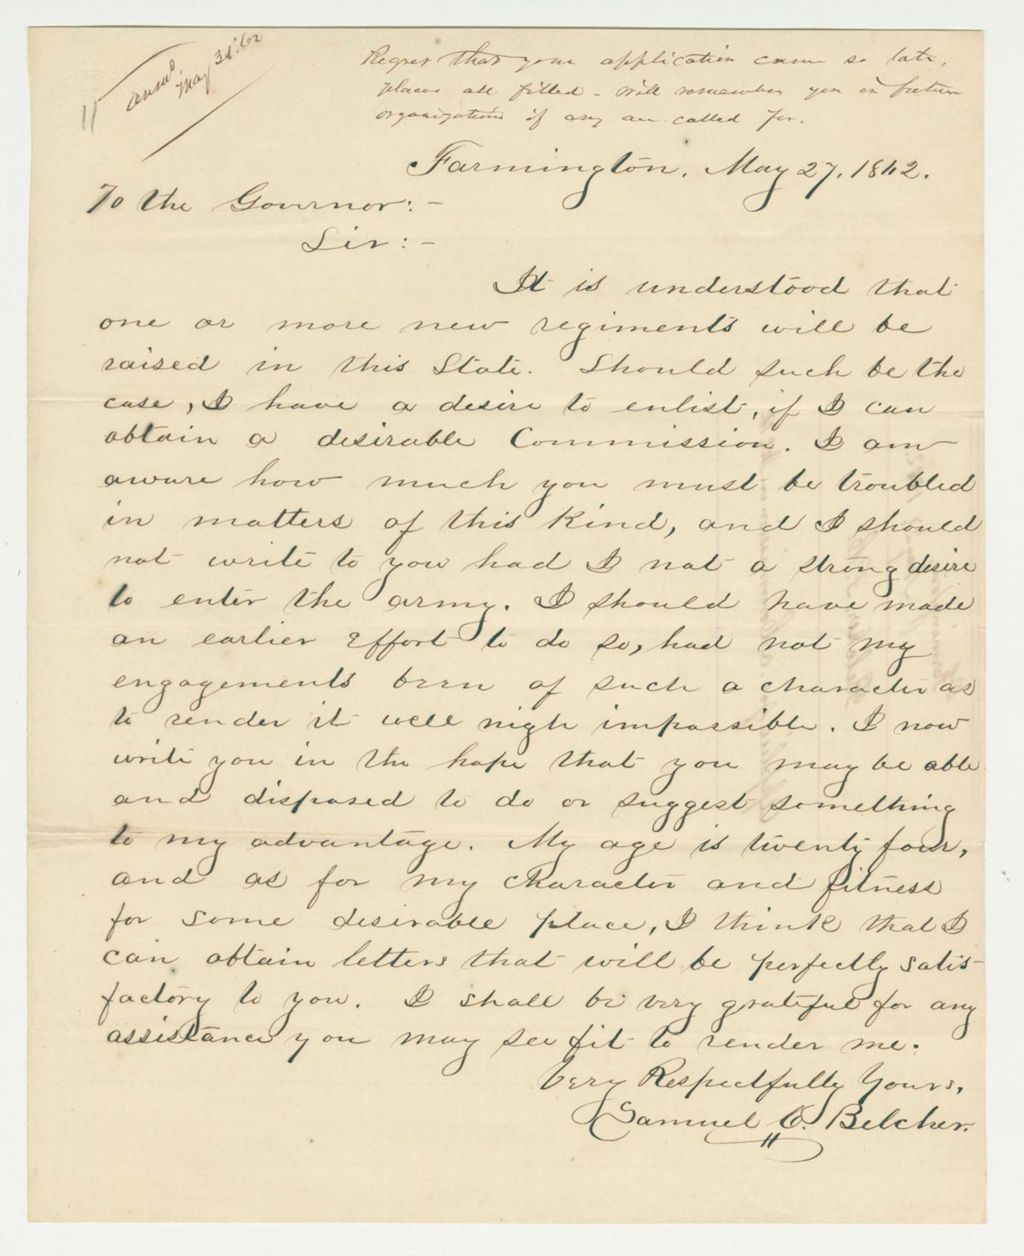 ansd
May 31: 62
11
Regret that your application came so late,
places all filled - Will remember you in future
organizations if any are called for.
Farmington, May 27, 1862.
To the Governor: -
Sir: -
It is understood that
one or more new regiments will be
raised in this State. Should such be the
case, I have a desire to enlist, if I can
obtain a desirable Commission. I am
aware how much you must be troubled
in matters of this kind, and I should
not write to you had I not a strong desire
to enter the army. I should have made
an earlier effort to do so, had not my
engagements been of such a character as
to render it well nigh impossible. I now
write you in the hope that you may be able
and disposed to do or suggest something
to my advantage. My age is twenty four,
and as for my character and fitness
for some desirable place, I think that I
can obtain letters that will be perfectly satis-
factory to you. I shall be very grateful for any
assistance you may see fit to render me.
Very Respectfully Yours,
Samuel C. Belcher.